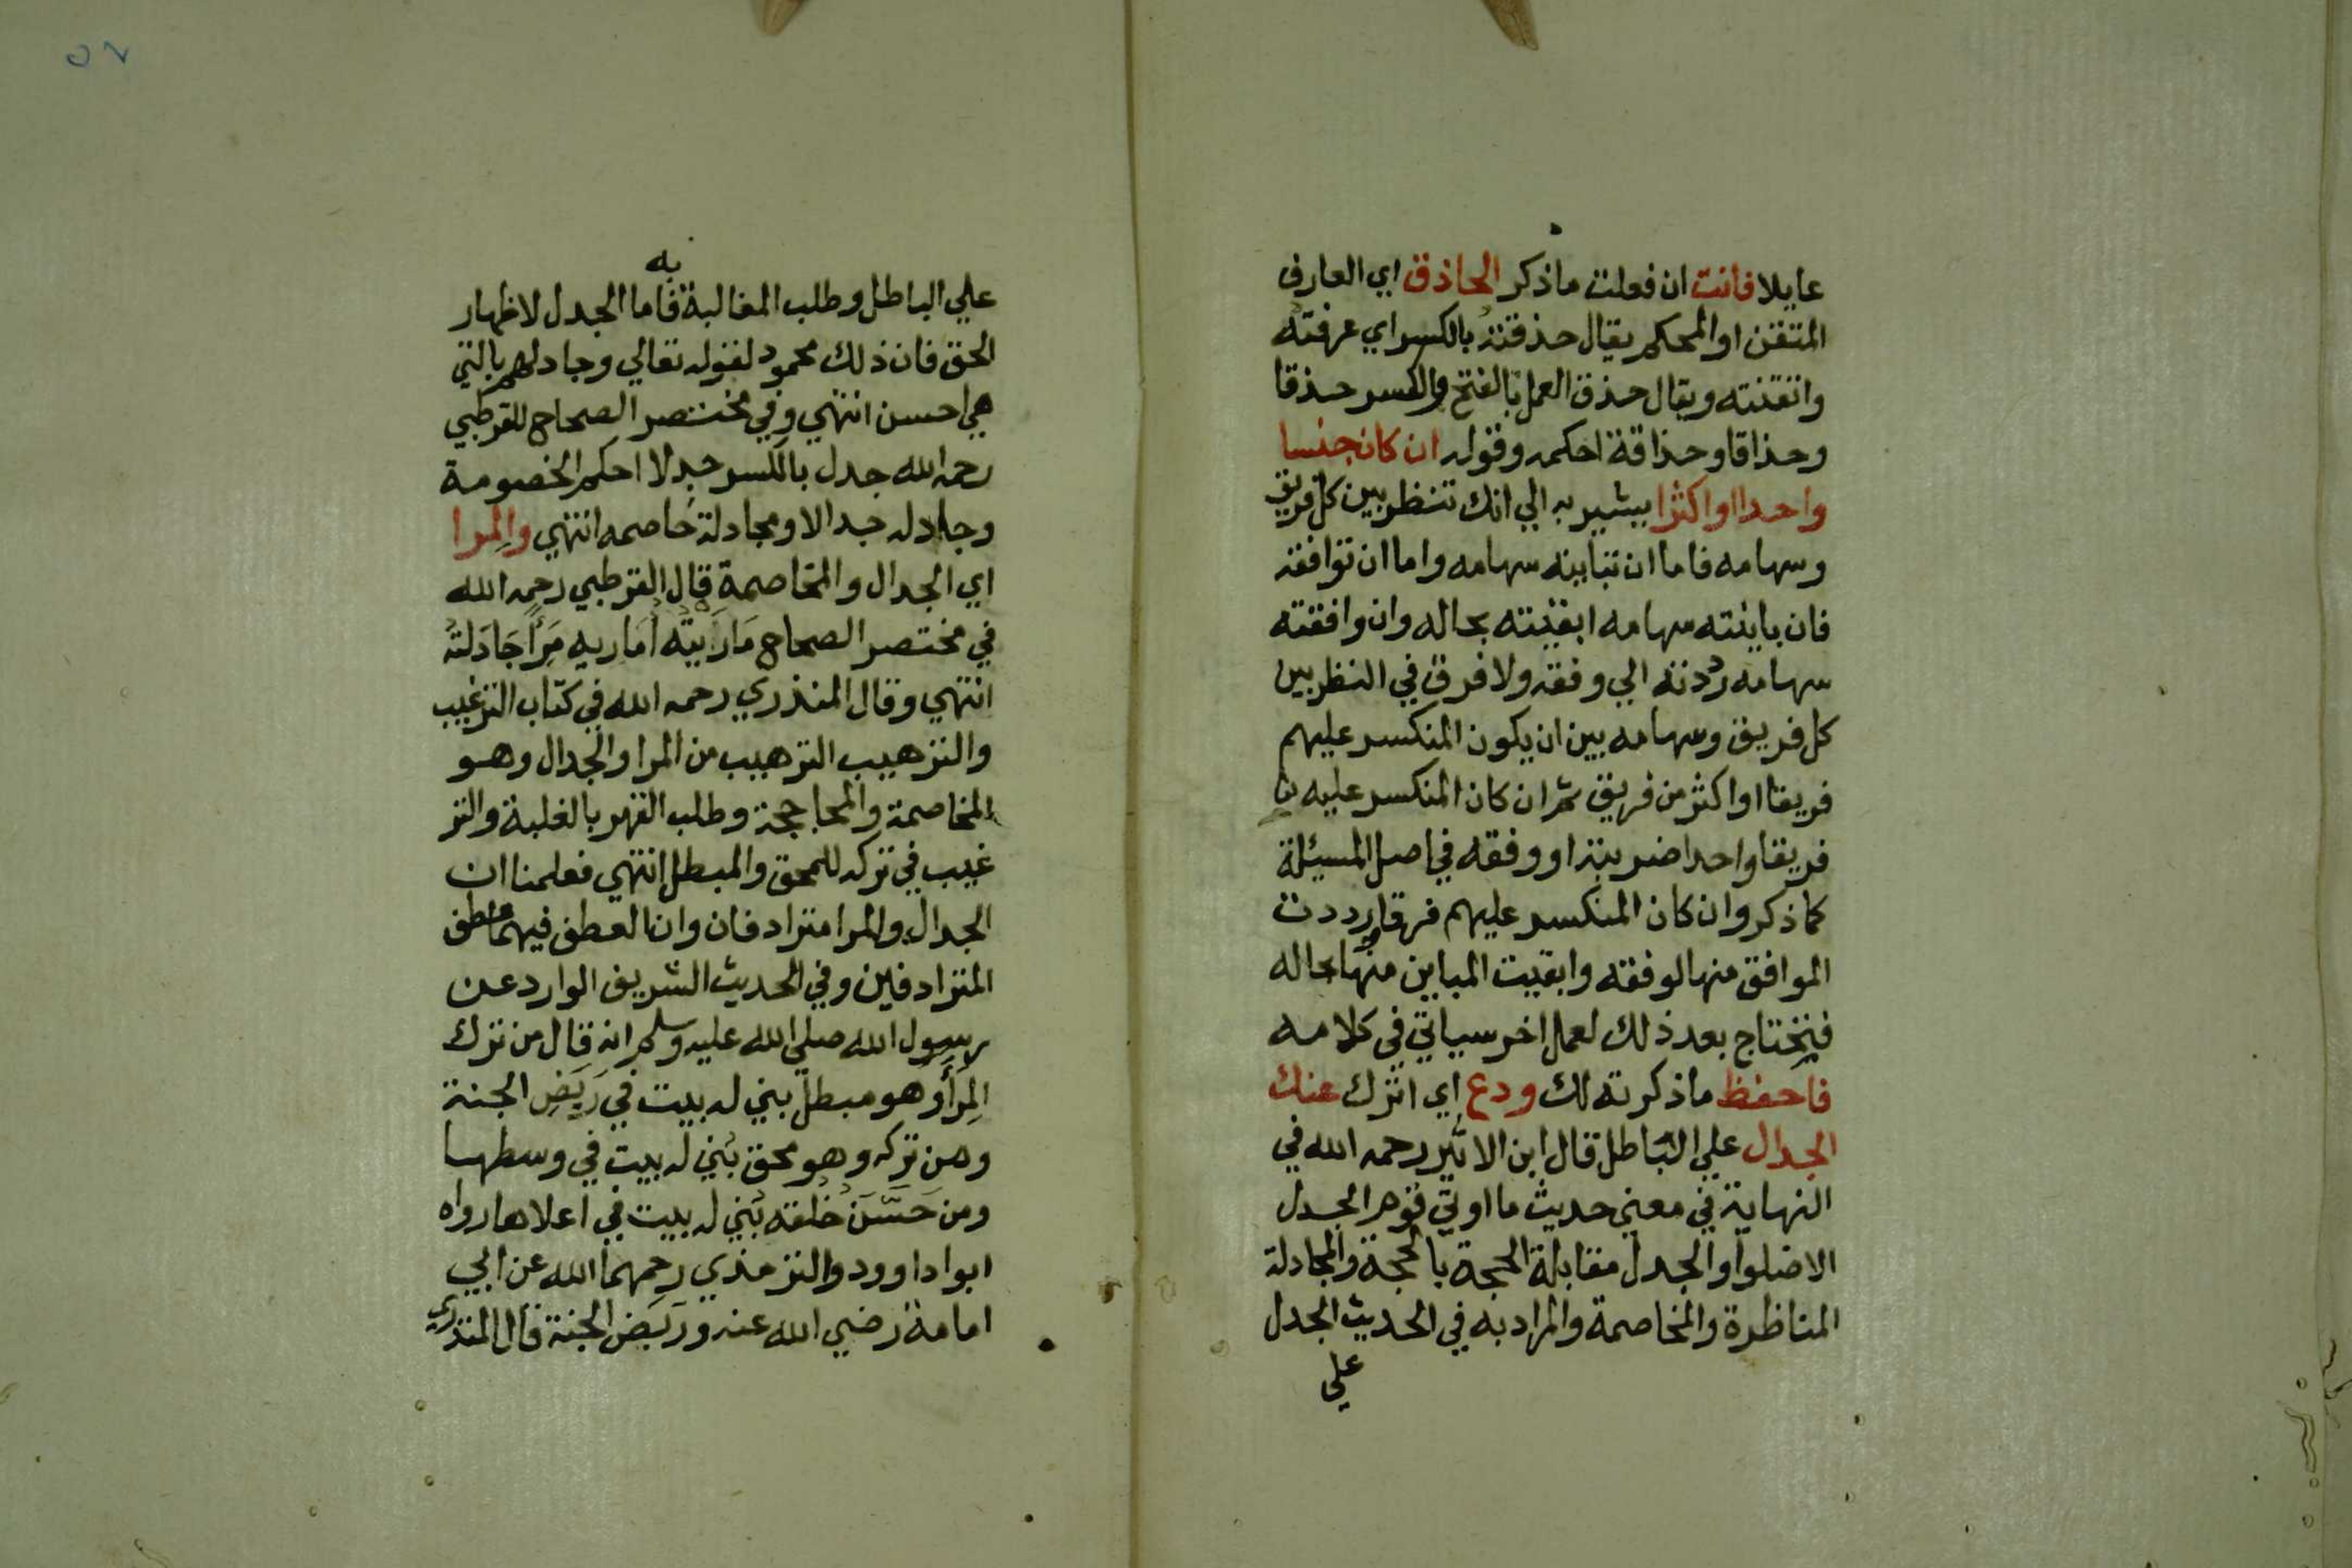 عايلا فانت ان فعلت ما ذكر الحاذق اي العارف
المتقن او المحكم يقال حذقتهُ بالكسر اي عرفته
واتقنته ويقال حذق العمل بالفتح والكسر حذقا
وحذاقا وحذاقة احكمه وقوله ان كان جنسا
واحدا او اكثرا يشير به الي انك تنظر بين كل فريق
وسهامه فاما ان تباينه سهامه واما ان توافقه
فان باينته سهامه ابقيته بحاله وان وافقته
سهامه رددته الي وفقه ولا فرق في النظر بين
كل فريق وسهامه بين ان يكون المنكسر عليهم
فريقا او اكثر من فريق ثم ان كان المنكسر عليه
فريقا واحدا ضربته او وفقه في اصل المسيئلة
كما ذكر وان كان المنكسر عليهم فرقا رددت
الموافق منها لوفقه وابقيت المباين منها بحاله
فتحتاج بعد ذلك لعمل اخر سياتي في كلامه
فاحفظ ما ذكرته لك ودع اي اترك عنك
الجدال علي الباطل قال ابن الاثير رحمه الله في
النهاية في معني حديث ما اوتي قوم الجدل
الا ضلوا والجدل مقابلة الحجة بالحجة والمجادلة
المناظرة والمخاصمة والمراد به في الحديث الجدل
علي
علي الباطل وطلب المغالبة به فاما الجدل لاظهار
الحق فان ذلك محمود لقوله تعالي وجادلهم بالتي
هي احسن انتهي وفي مختصر الصحاح للقرطبي
رحمه الله جدل بالكسر جدلا احكم الخصومة
وجادله جدالا ومجادلة خاصمه انتهي والمِرا
اي الجدال والمخاصمة قال القرطبي رحمه الله
في مختصر الصحاح مَارَيتُه أُمَاريه مِرًا جَادَلتهُ
انتهي وقال المنذري رحمه الله في كتاب الترغيب
والترهيب الترهيب من المرا والجدال وهو
المخاصمة والمحاججة وطلب القهر بالغلبة والتر
غيب في تركه للمحق والمبطل انتهي فعلمنا ان
الجدال والمرا مترادفان وان العطف فيهما عطف
المترادفين وفي الحديث الشريف الوارد عن
رسول الله صلي الله عليه وسلم انه قال من ترك
المِرَأَ وهو مبطل بني له بيت في رَبَضِ الجنة
ومن تركه وهو محق بُني له بيت في وسطها
ومن حَسَّنَ خُلُقه بُني له بيت في اعلاها رواه
ابوا داوود والترمذي رحمهما الله عن ابي
امامة رضي الله عنه ورَبَض الجنة قال المنذري